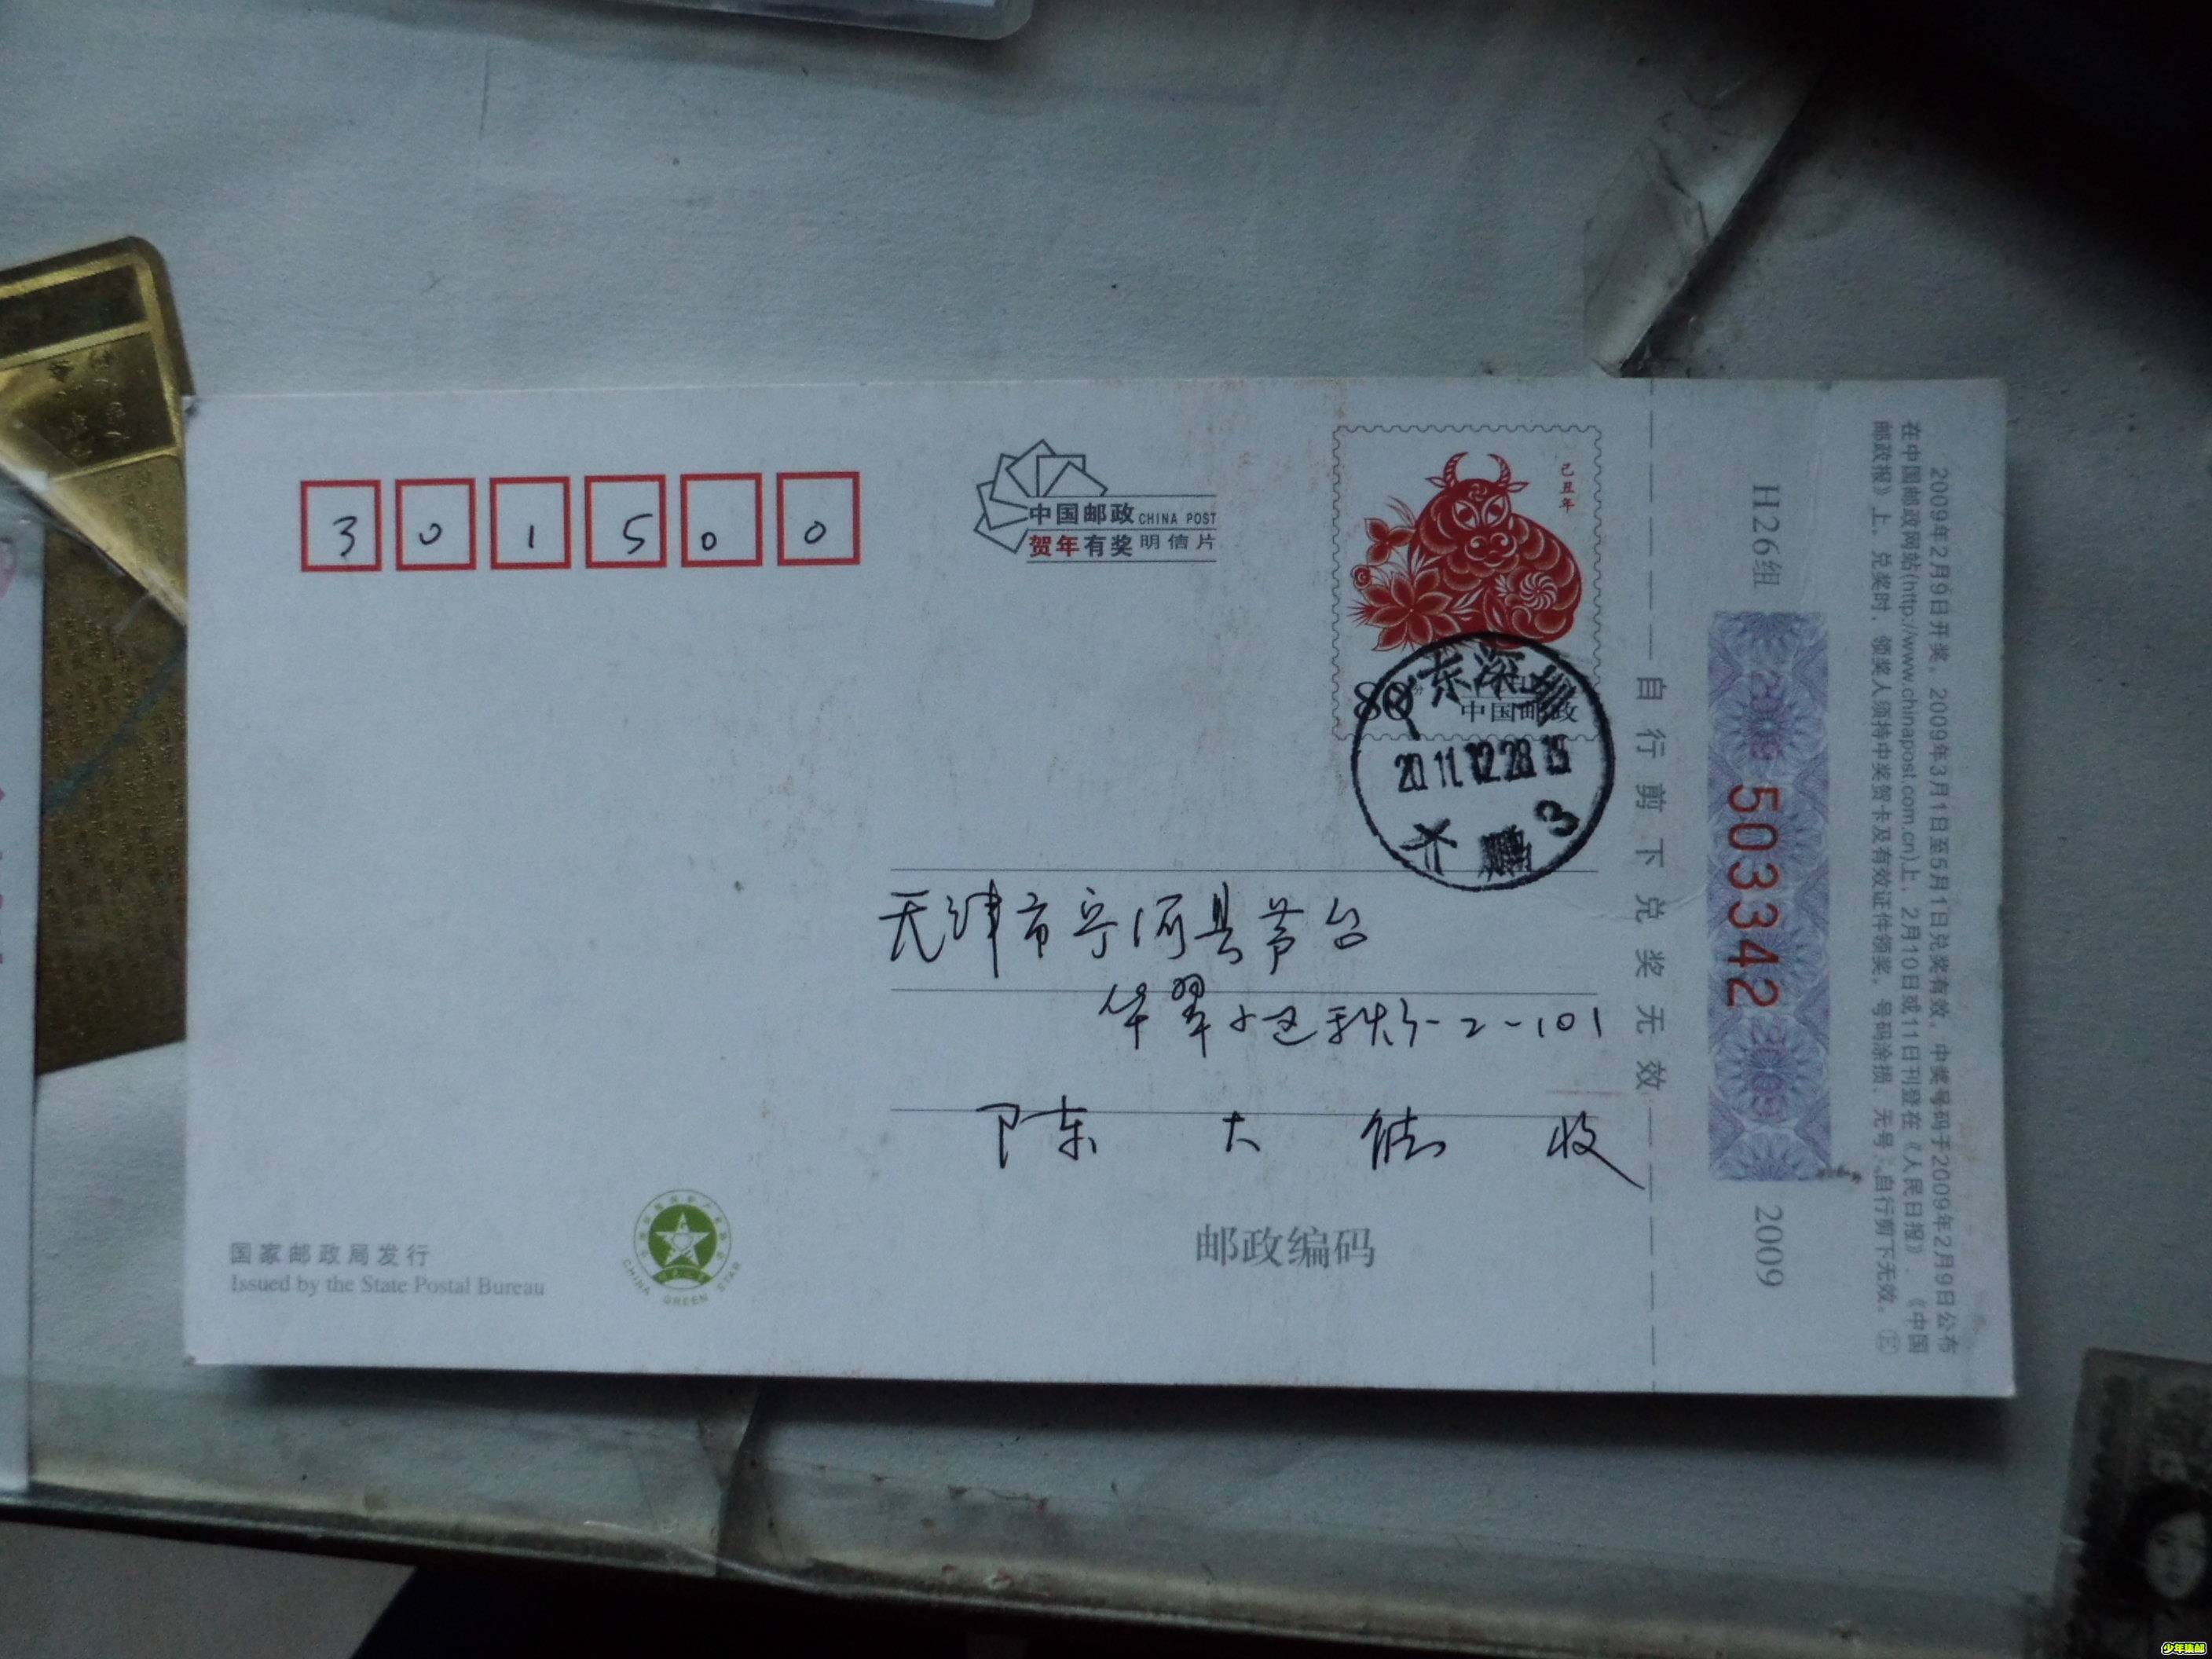 301500
中国邮政 CHINA POST
贺年有奖明信片
己丑年
80分
中国邮政
广东深圳
2011.12.28 15
大鹏 3
天津市宁河县芦台
华翠小区
2-101
陈大
收
邮政编码
国家邮政局发行
Issued by the State Postal Bureau
CHINA GREEN STAR
自行剪下兑奖无效
H26组
2009 503342 2009
2009
2009年2月9日开奖。2009年3月1日至5月1日兑奖有效。中奖号码于2009年2月9日公布
在中国邮政网站(http://www.chinapost.com.cn)上，2月10日或11日刊登在《人民日报》、《中国
邮政报》上。兑奖时，领奖人须持中奖贺卡及有效证件领奖。号码涂损、无号、自行剪下无效。
少年集邮